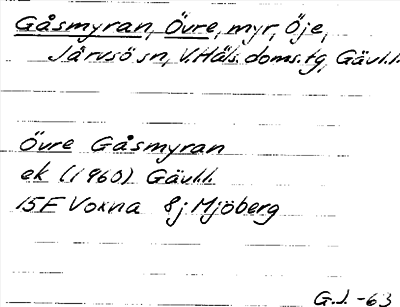 Gåsmyran, Övre, myr, Öje,
Järvsö sn, V. Häls. doms. tg, Gävl.l.
Övre Gåsmyran
ek (1960) Gävl.l.
15F Voxna 8j Mjöberg
G.J. -63